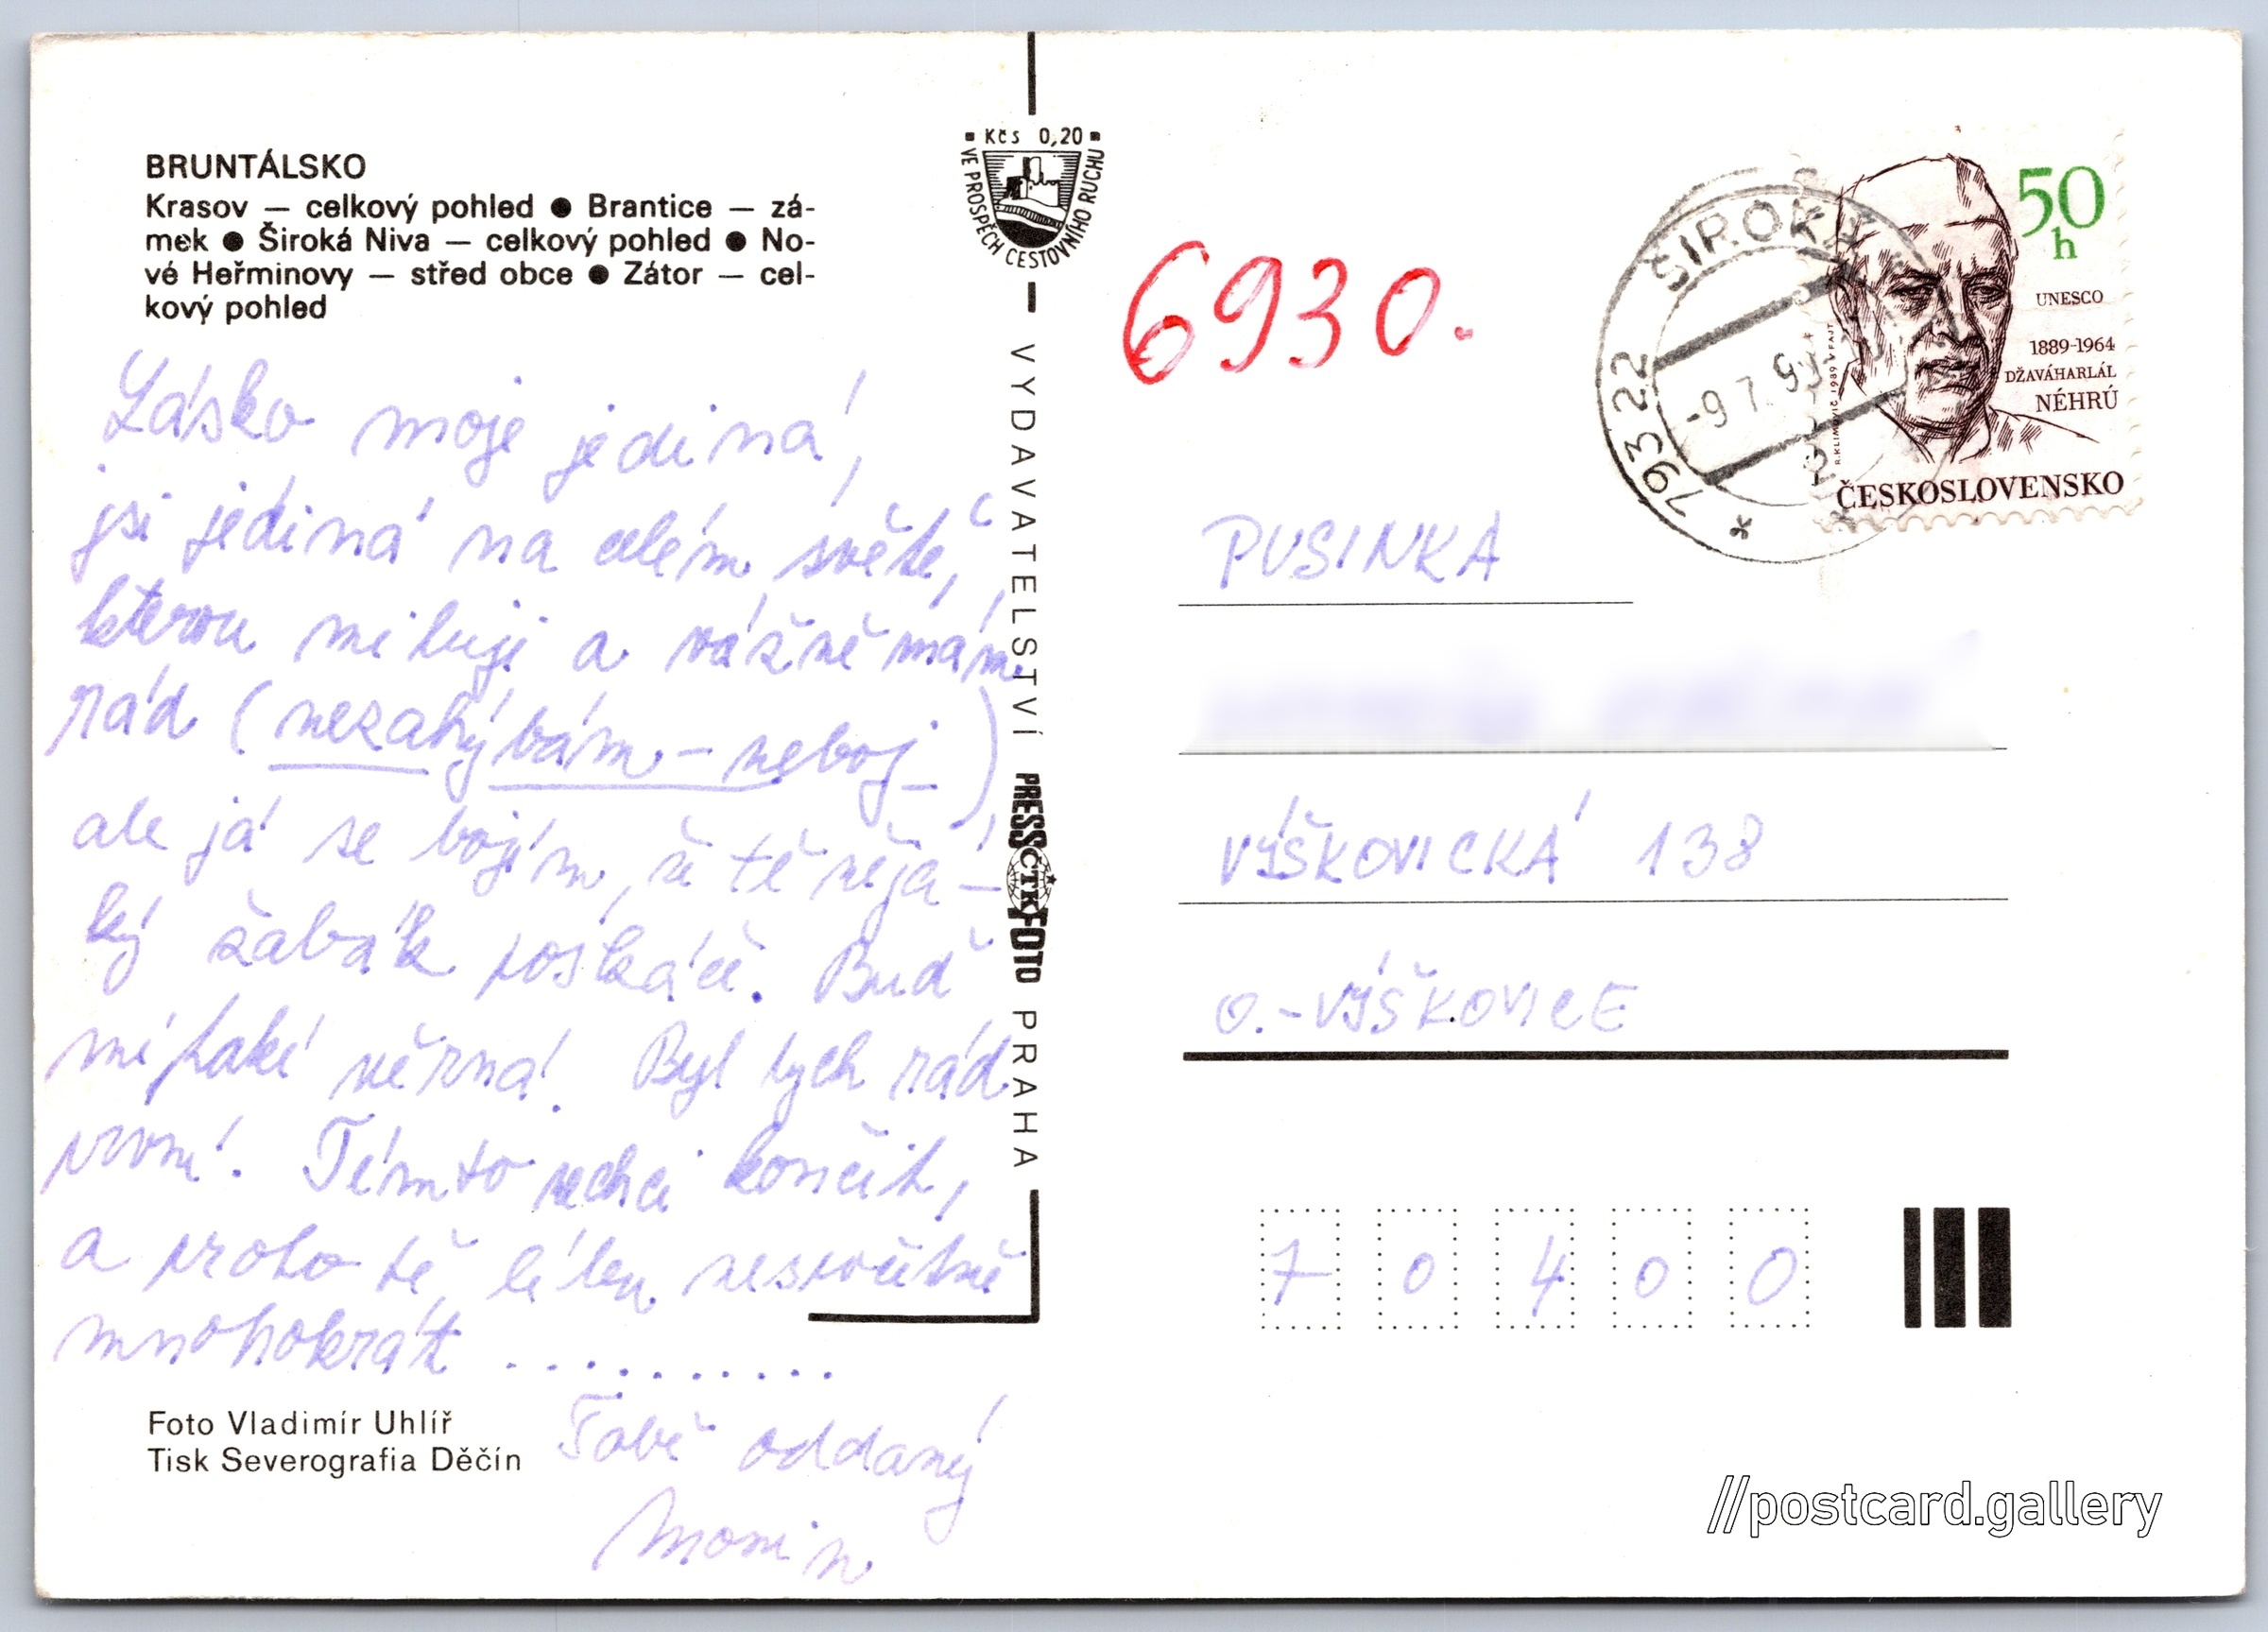 BRUNTÁLSKO
Krasov — celkový pohled ● Brantice — zá-
mek ● Široká Niva — celkový pohled ● No-
vé Heřminovy — střed obce ● Zátor — cel-
kový pohled
Lásko moje jediná,
jsi jediná na celém světě,
kterou miluji a vážně mám
rád (nezahýbám – neboj)
ale já se bojím, že tě něja-
ký žabák poskáče. Buď
mi také věrná. Byl bych rád
první. Tímto nechci končit,
a proto tě líbám
mnohokrát . . . . . . . . . .
Tobě oddaný
Foto Vladimír Uhlíř
Tisk Severografia Děčín
Kčs 0,20
VE PROSPĚCH CESTOVNÍHO RUCHU
VYDAVATELSTVÍ PRESSFOTO PRAHA
ČTK
6930.
793 22 ŠIROKÁ
-9.7.9
50
h
UNESCO
1889-1964
DŽAVÁHARLÁL
NÉHRÚ
ČESKOSLOVENSKO
PUSINKA
VÝŠKOVICKÁ 138
O.-VÝŠKOVICE
7 0 4 0 0
//postcard.gallery